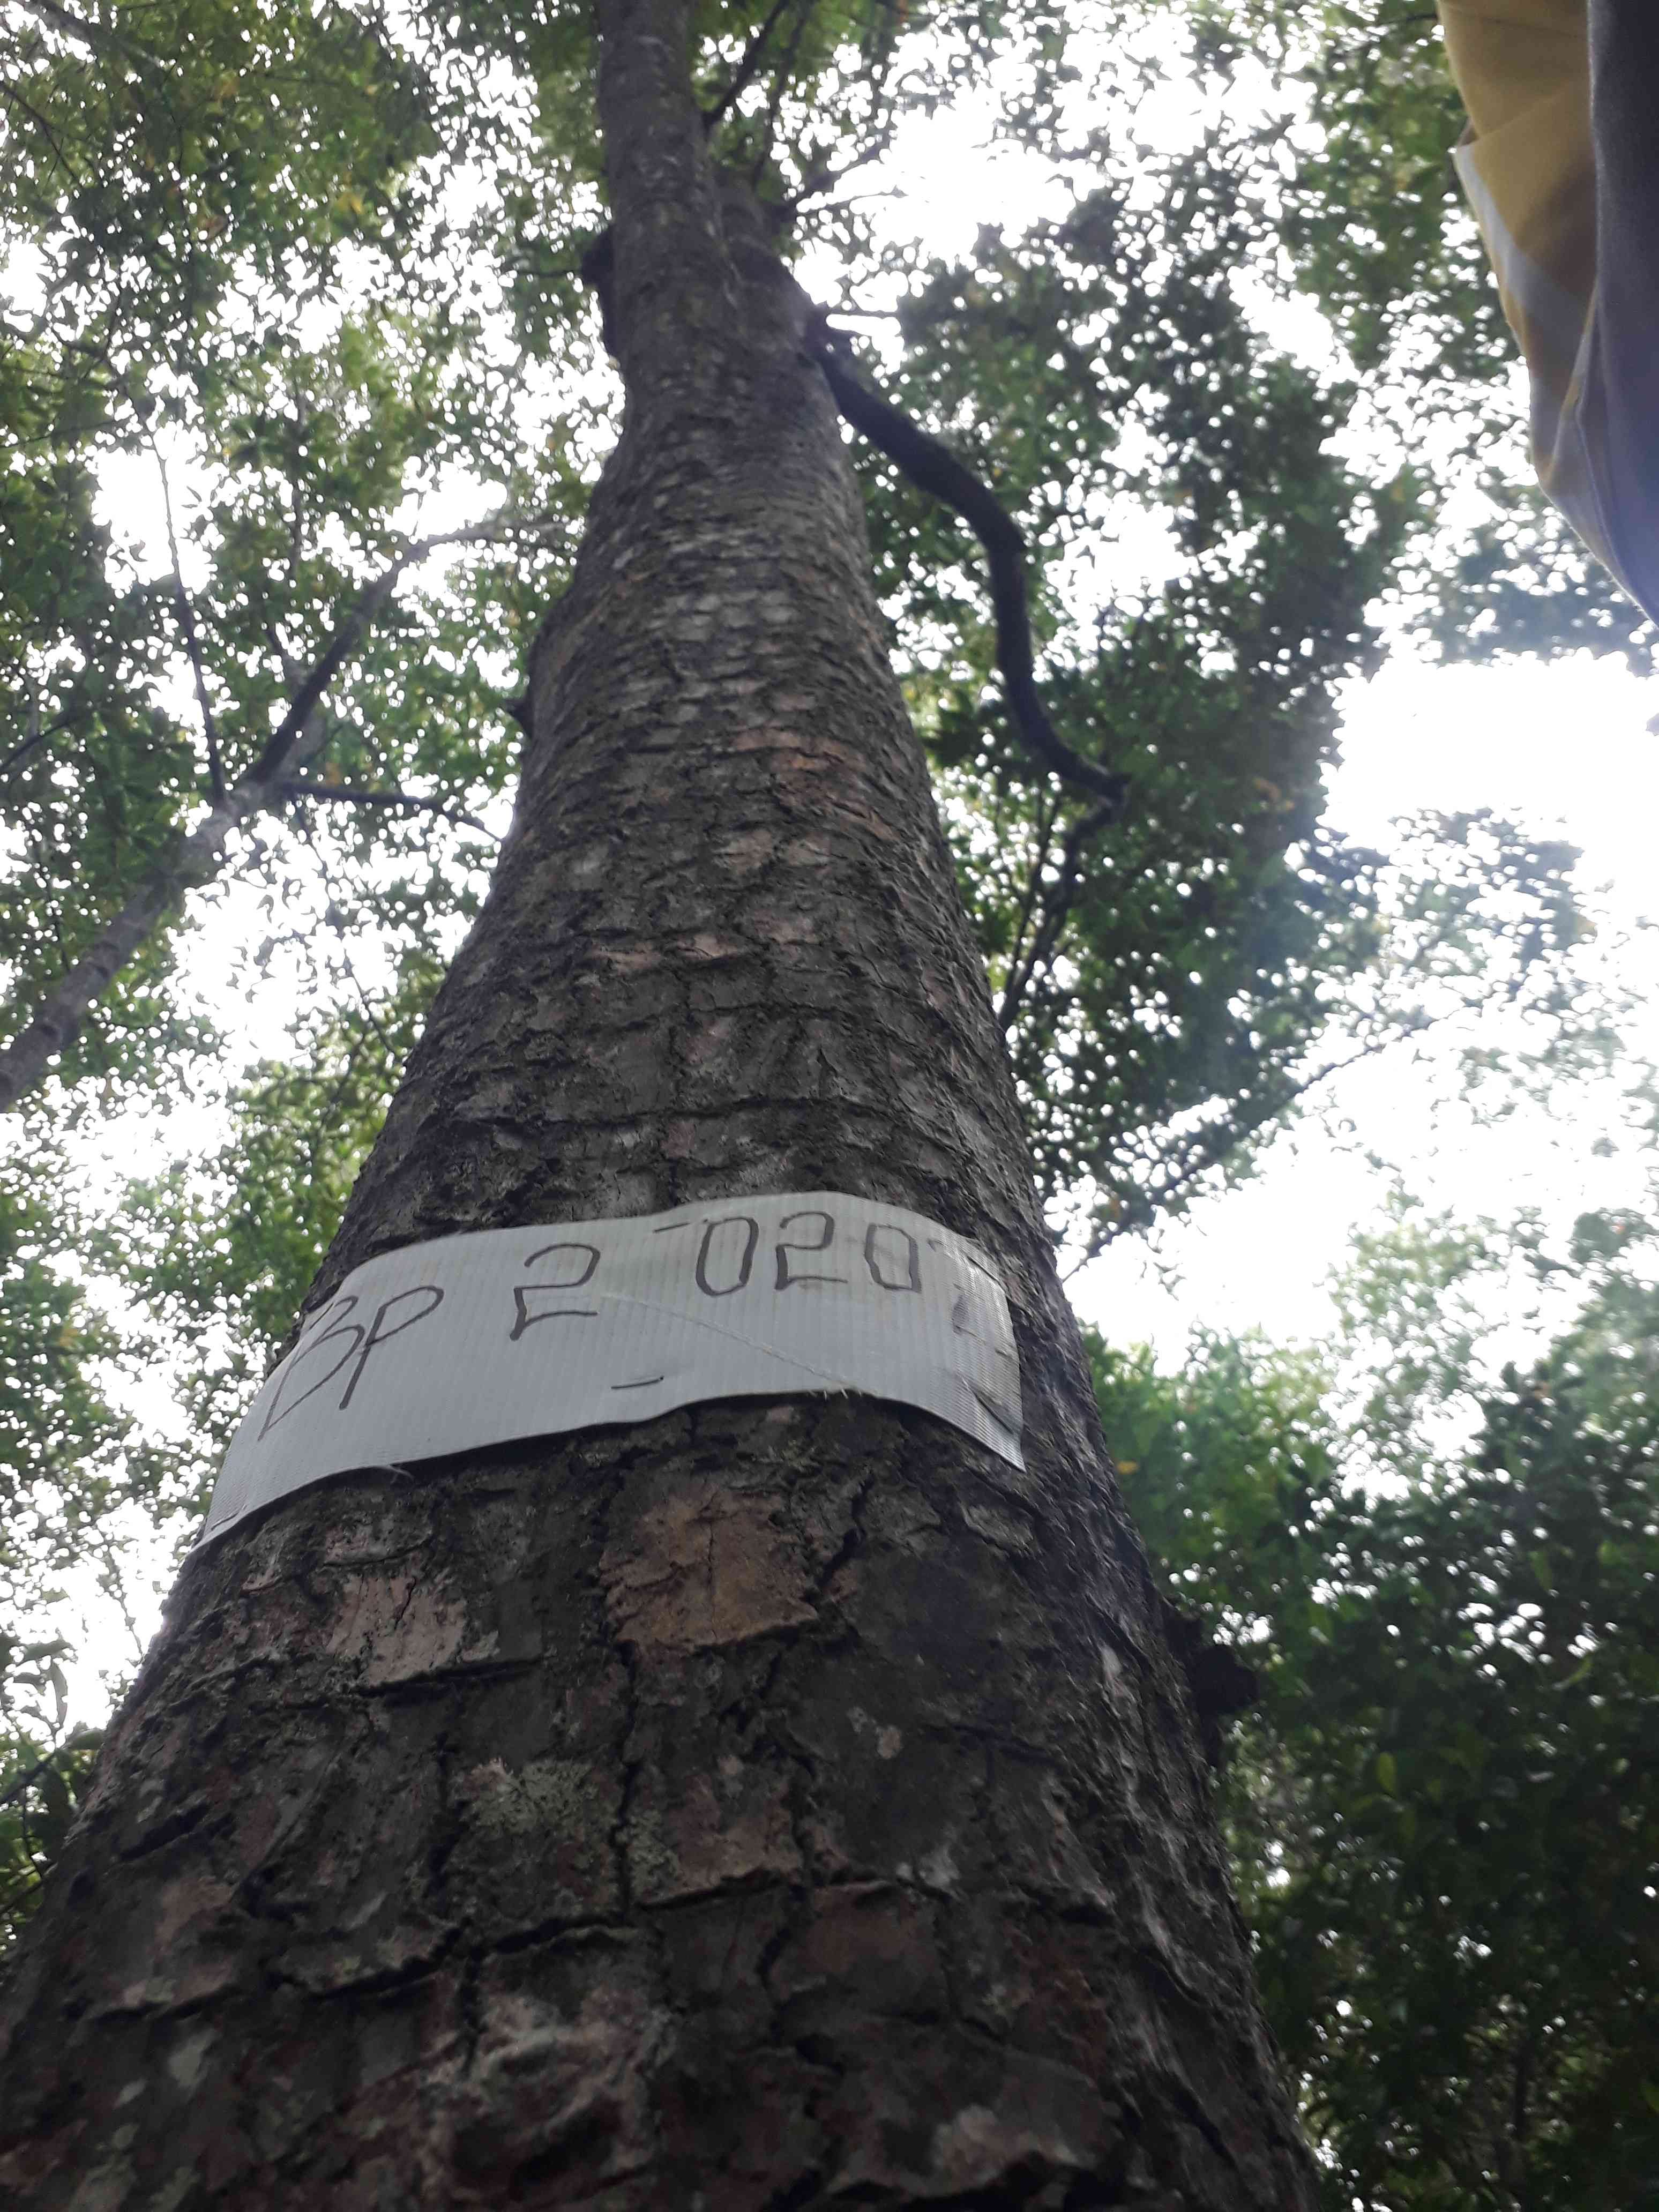 BP 2 -020